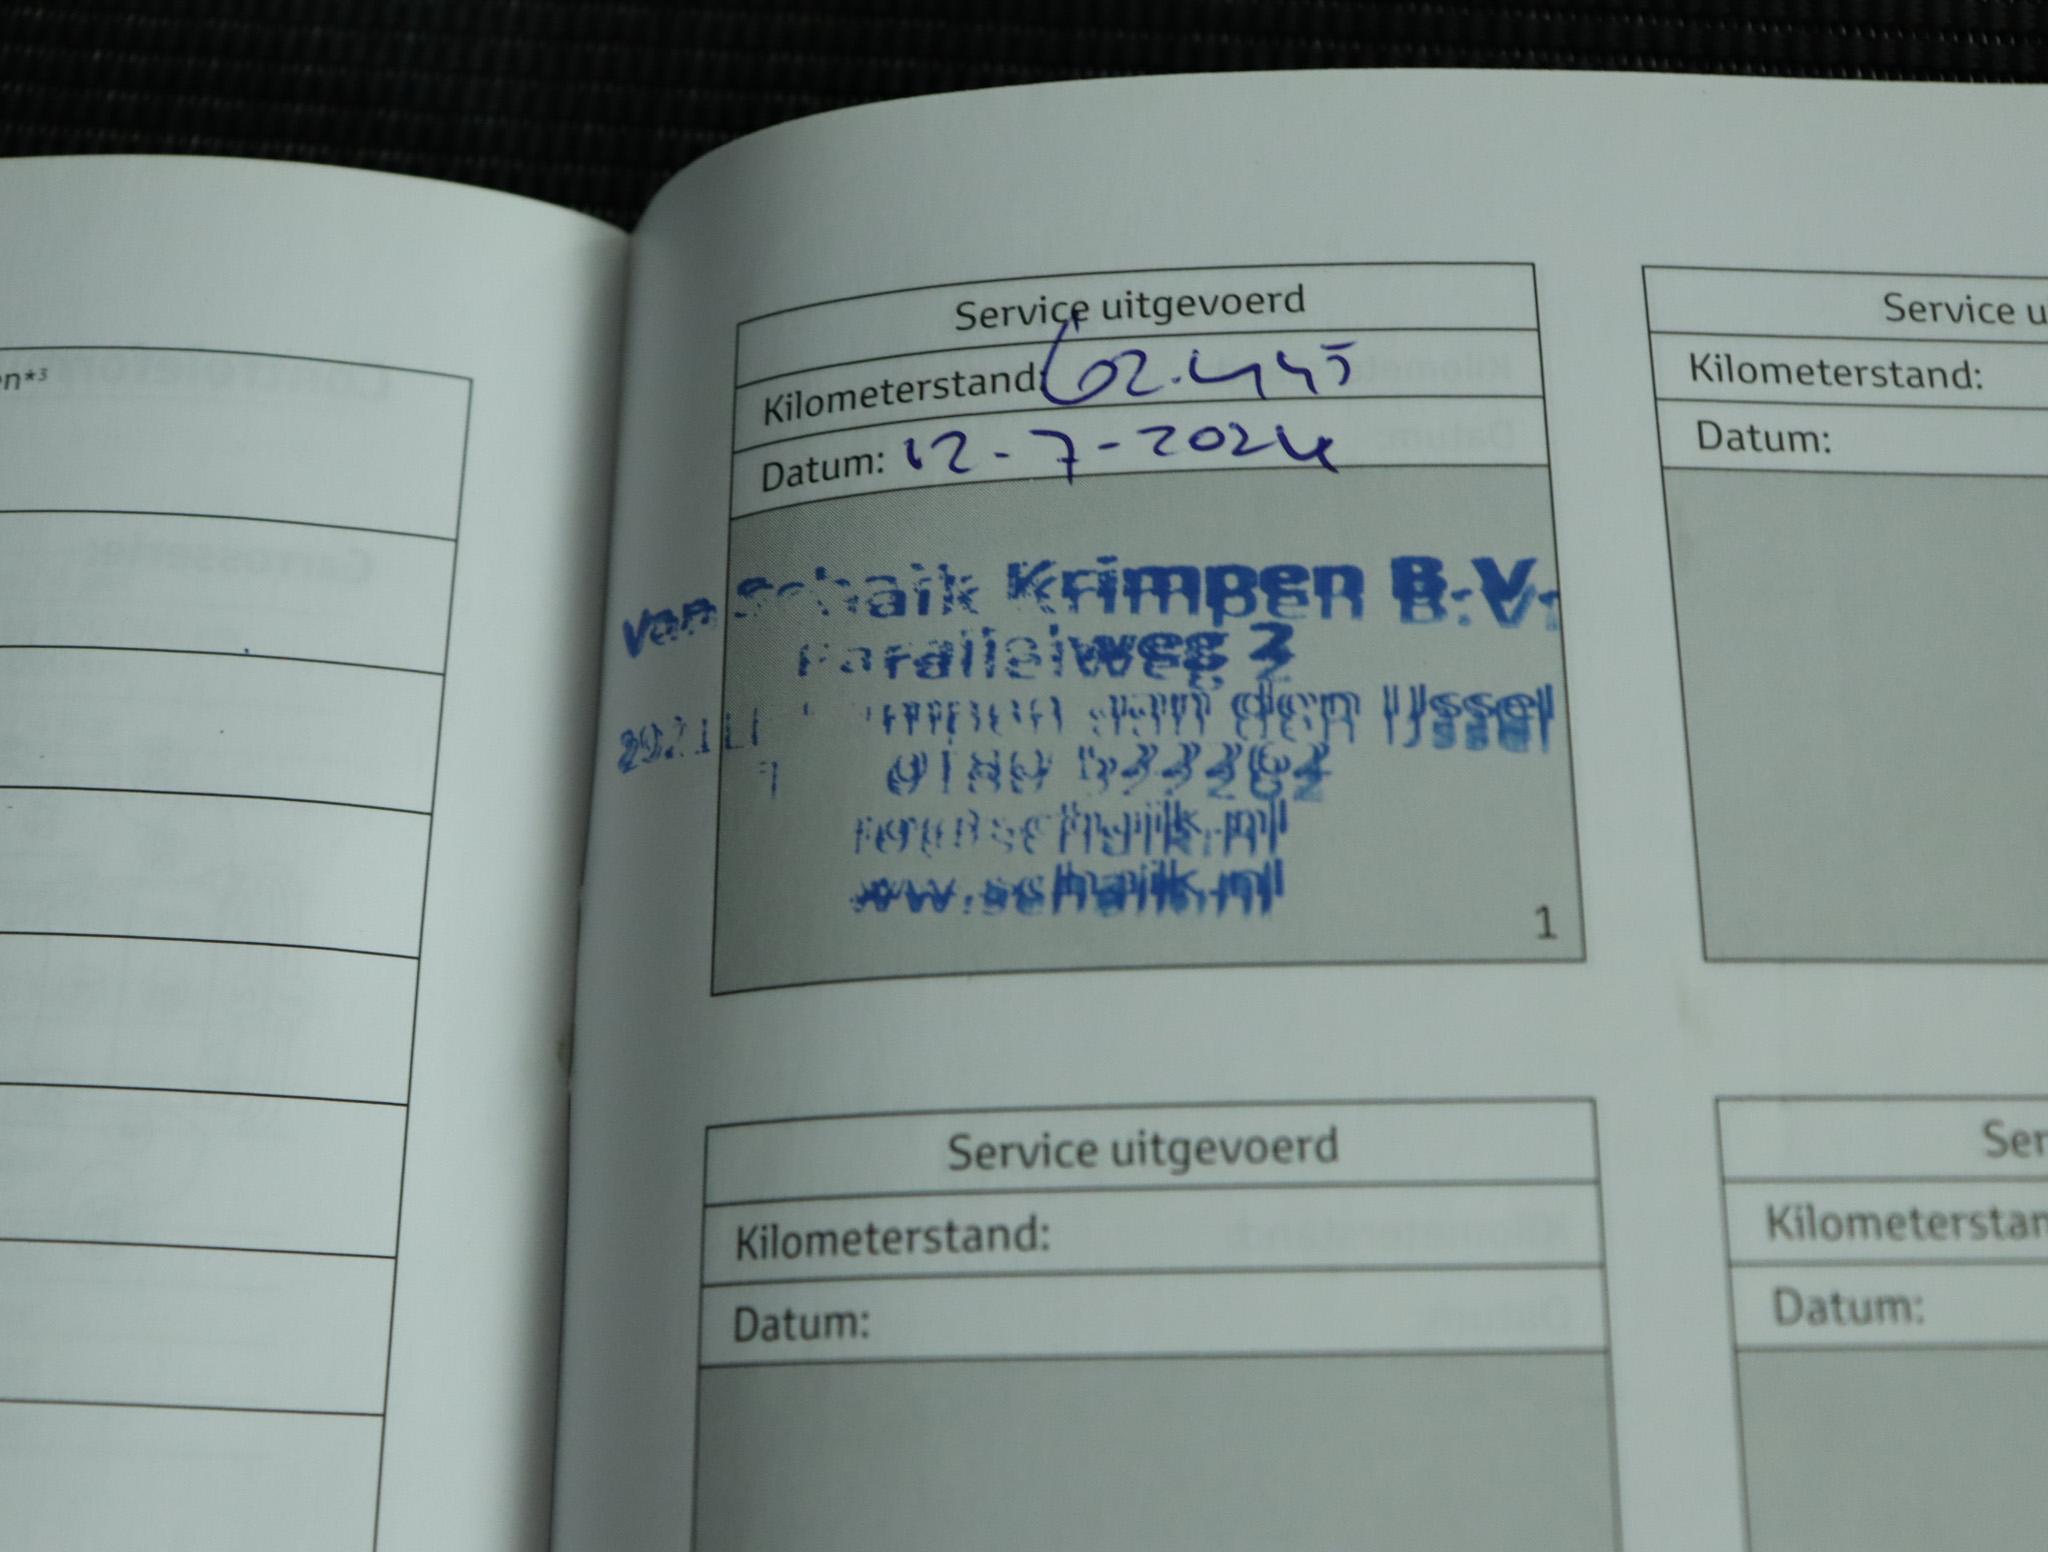 en*³
Service uitgevoerd
Kilometerstand: 62.445
Datum: 12-7-2024
van Schaik Krimpen B.V.
Parallelweg 2
aan den IJssel
www.schaik.nl
1
Service u
Kilometerstand:
Datum:
Service uitgevoerd
Kilometerstand:
Datum:
Ser
Kilometerstan
Datum: